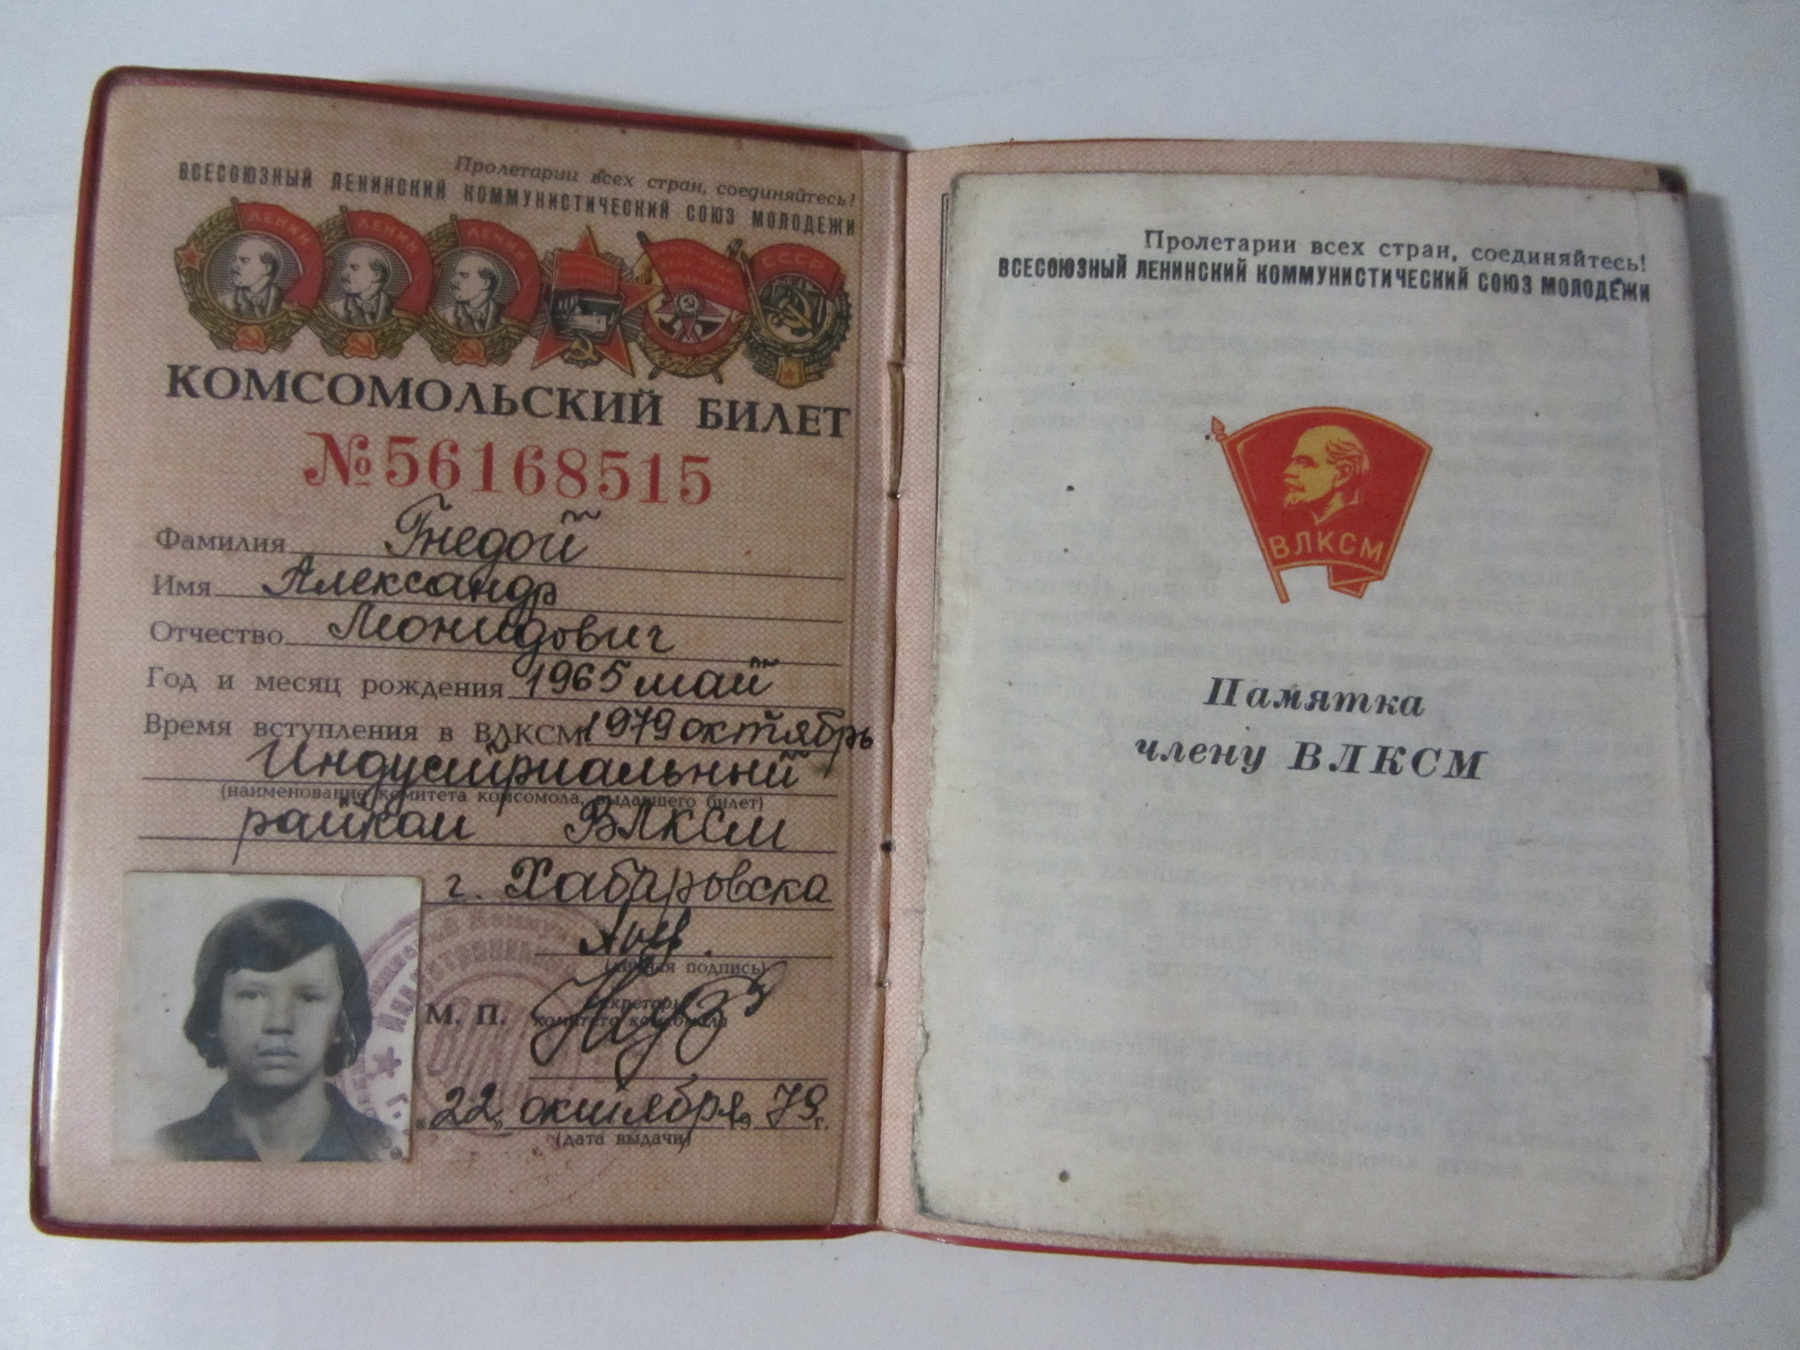 Пролетарии всех стран, соединяйтесь!
ВСЕСОЮЗНЫЙ ЛЕНИНСКИЙ КОММУНИСТИЧЕСКИЙ СОЮЗ МОЛОДЕЖИ
ЛЕНИН ЛЕНИН ЛЕНИН СССР
КОМСОМОЛЬСКИЙ БИЛЕТ
№56168515
Фамилия Гнедой
Имя Александр
Отчество Леонидович
Год и месяц рождения 1965 май
Время вступления в ВЛКСМ 1979 октябрь
Индустриальный
(наименование комитета комсомола, выдавшего билет)
райком ВЛКСМ
г. Хабаровска
(личная подпись)
М. П.
Секретарь
комитета комсомола
"22" октября 1979 г.
(дата выдачи)
Пролетарии всех стран, соединяйтесь!
ВСЕСОЮЗНЫЙ ЛЕНИНСКИЙ КОММУНИСТИЧЕСКИЙ СОЮЗ МОЛОДЕЖИ
ВЛКСМ
Памятка
члену ВЛКСМ